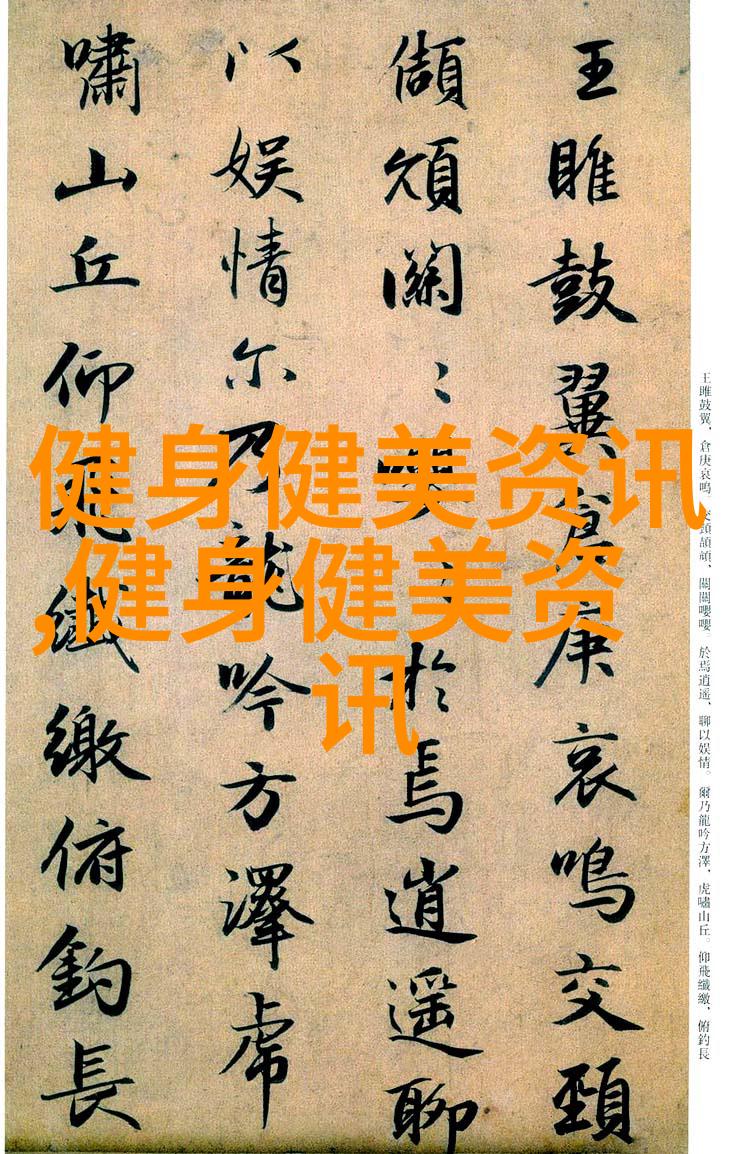 王雎鼓翼倉庚哀鳴交頸
頡頏關〻嚶〻於焉逍遥聊
以娱情尔乃龍吟方澤虎
嘯山丘仰飛纖繳俯釣長
健身健美资讯
,健身健美资
讯
王雎鼓翼，倉庚哀鳴，交頸頡頏，關關嚶嚶。於焉逍遥，聊以娱情。爾乃龍吟方澤，虎嘯山丘。仰飛纖繳，俯釣長